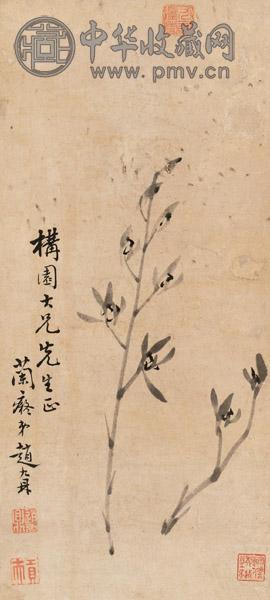 中华收藏网
www.pmv.cn
構園大兄先生正
蘭癡弟趙九鼎